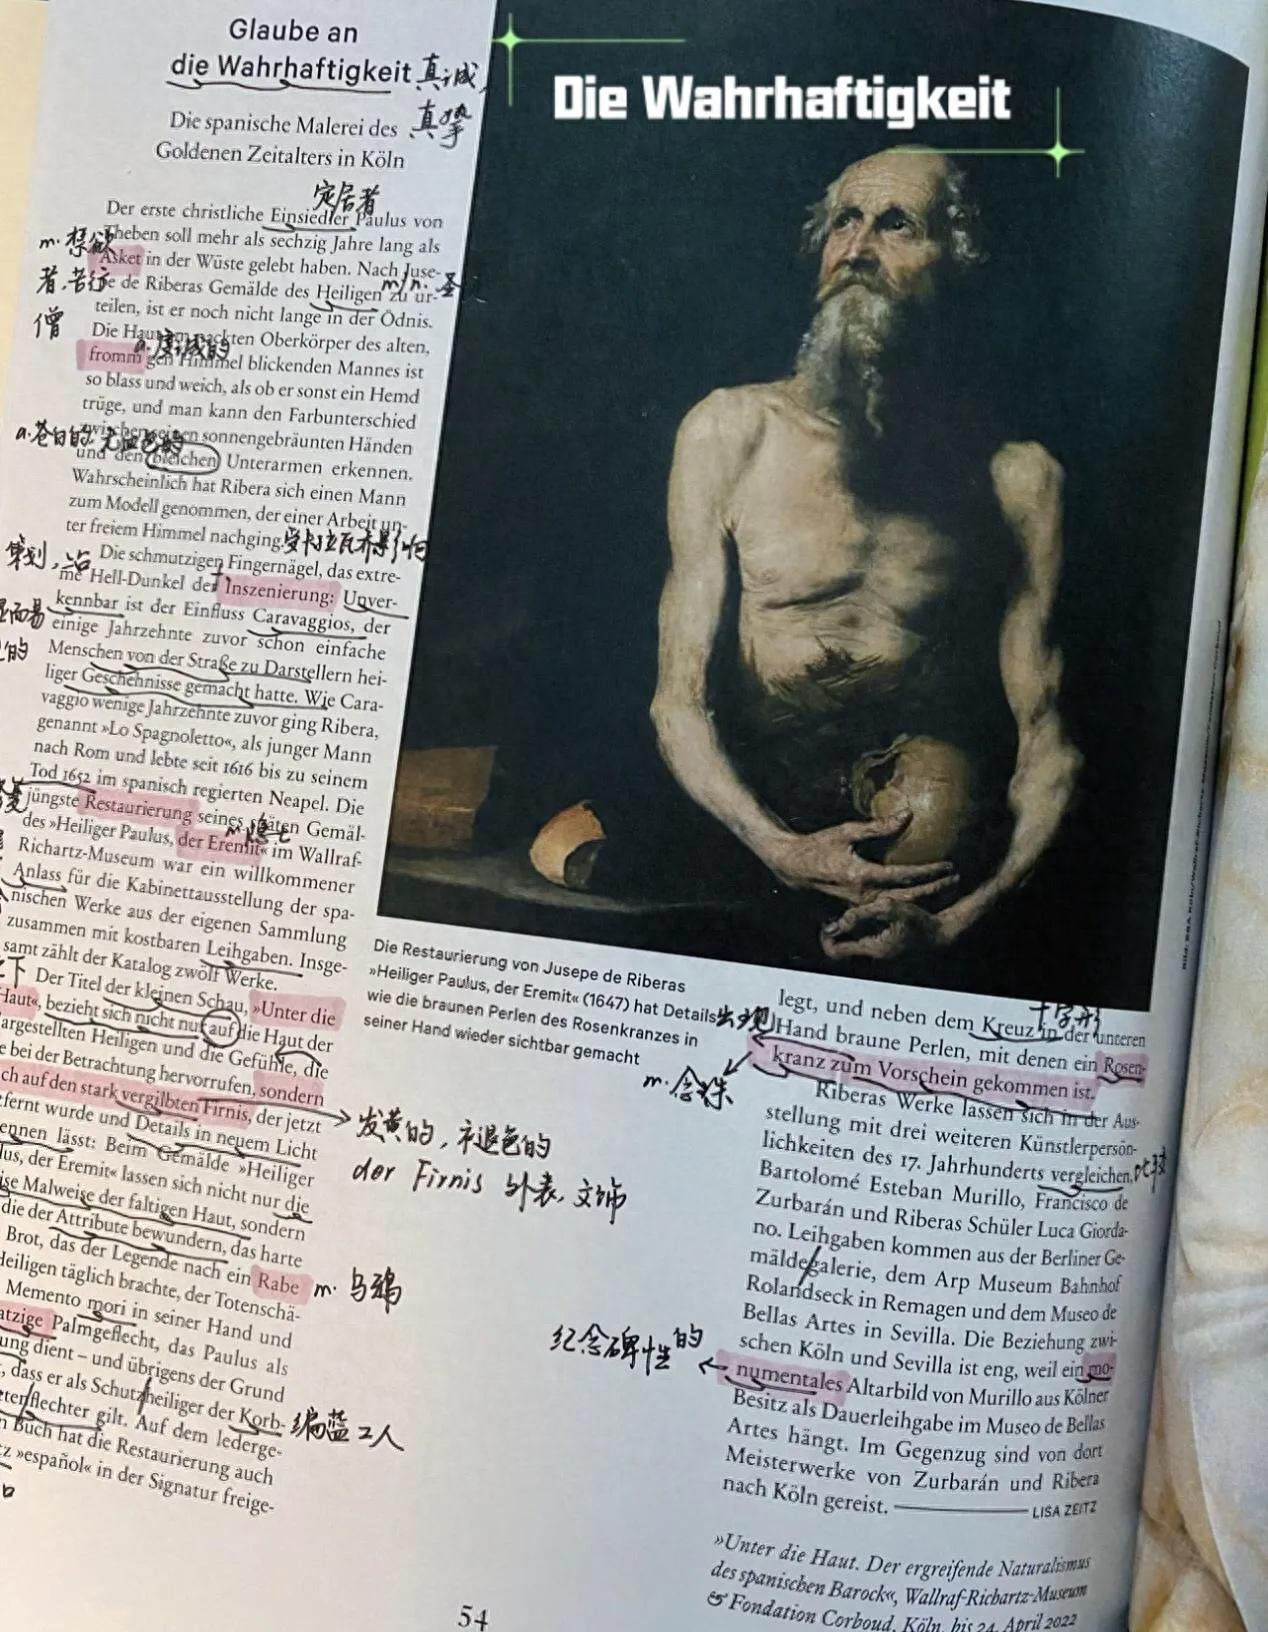 Glaube an
die Wahrhaftigkeit 真诚,
真挚
Die spanische Malerei des
Goldenen Zeitalters in Köln
Die Wahrhaftigkeit
定居者
Der erste christliche Einsiedler Paulus von
Theben soll mehr als sechzig Jahre lang als
m. 禁欲
者,苦行
僧
Asket in der Wüste gelebt haben. Nach Juse-
m/n. 圣
pe de Riberas Gemälde des Heiligen zu ur-
teilen, ist er noch nicht lange in der Ödnis.
Die Haut am nackten Oberkörper des alten,
a. 虔诚的
fromm gen Himmel blickenden Mannes ist
so blass und weich, als ob er sonst ein Hemd
trüge, und man kann den Farbunterschied
a. 苍白的 无血色的
zwischen seinen sonnengebräunten Händen
und den bleichen Unterarmen erkennen.
Wahrscheinlich hat Ribera sich einen Mann
zum Modell genommen, der einer Arbeit un-
ter freiem Himmel nachging.
受卡拉瓦乔影响
策划,
Die schmutzigen Fingernägel, das extre-
me Hell-Dunkel der Inszenierung: Unver-
kennbar ist der Einfluss Caravaggios, der
而易
的
einige Jahrzehnte zuvor schon einfache
Menschen von der Straße zu Darstellern hei-
liger Geschehnisse gemacht hatte. Wie Cara-
vaggio wenige Jahrzehnte zuvor ging Ribera,
genannt »Lo Spagnoletto«, als junger Mann
nach Rom und lebte seit 1616 bis zu seinem
Tod 1652 im spanisch regierten Neapel. Die
jüngste Restaurierung seines späten Gemäl-
m. 隐士
des »Heiliger Paulus, der Eremit« im Wallraf-
Richartz-Museum war ein willkommener
Anlass für die Kabinettausstellung der spa-
nischen Werke aus der eigenen Sammlung
zusammen mit kostbaren Leihgaben. Insge-
samt zählt der Katalog zwölf Werke.
下
Der Titel der kleinen Schau, »Unter die
Haut«, bezieht sich nicht nur auf die Haut der
argestellten Heiligen und die Gefühle, die
e bei der Betrachtung hervorrufen, sondern
ch auf den stark vergilbten Firnis, der jetzt
发黄的,褪色的
der Firnis 外表,文饰
tfernt wurde und Details in neuem Licht
ennen lässt: Beim Gemälde »Heiliger
lus, der Eremit« lassen sich nicht nur die
ise Malweise der faltigen Haut, sondern
die der Attribute bewundern, das harte
Brot, das der Legende nach ein Rabe m. 乌鸦
Heiligen täglich brachte, der Totenschä-
Memento mori in seiner Hand und
atzige Palmgeflecht, das Paulus als
ung dient – und übrigens der Grund
, dass er als Schutzheiliger der Korb- 编蓝工人
tterflechter gilt. Auf dem lederge-
n Buch hat die Restaurierung auch
tz »español« in der Signatur freige-
Die Restaurierung von Jusepe de Riberas
»Heiliger Paulus, der Eremit« (1647) hat Details
wie die braunen Perlen des Rosenkranzes in
seiner Hand wieder sichtbar gemacht
十字形
legt, und neben dem Kreuz in der unteren
出现
Hand braune Perlen, mit denen ein Rosen-
kranz zum Vorschein gekommen ist.
m. 念珠
Riberas Werke lassen sich in der Aus-
stellung mit drei weiteren Künstlerpersön-
lichkeiten des 17. Jahrhunderts vergleichen, 比较
Bartolomé Esteban Murillo, Francisco de
Zurbarán und Riberas Schüler Luca Giorda-
no. Leihgaben kommen aus der Berliner Ge-
mäldegalerie, dem Arp Museum Bahnhof
Rolandseck in Remagen und dem Museo de
Bellas Artes in Sevilla. Die Beziehung zwi-
schen Köln und Sevilla ist eng, weil ein mo-
纪念碑性的
numentales Altarbild von Murillo aus Kölner
Besitz als Dauerleihgabe im Museo de Bellas
Artes hängt. Im Gegenzug sind von dort
Meisterwerke von Zurbarán und Ribera
nach Köln gereist. LISA ZEITZ
»Unter die Haut. Der ergreifende Naturalismus
des spanischen Barock«, Wallraf-Richartz-Museum
& Fondation Corboud, Köln, bis 24. April 2022
54